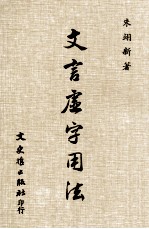 朱翊新著
文言虛字用法
文史哲出版社
印行